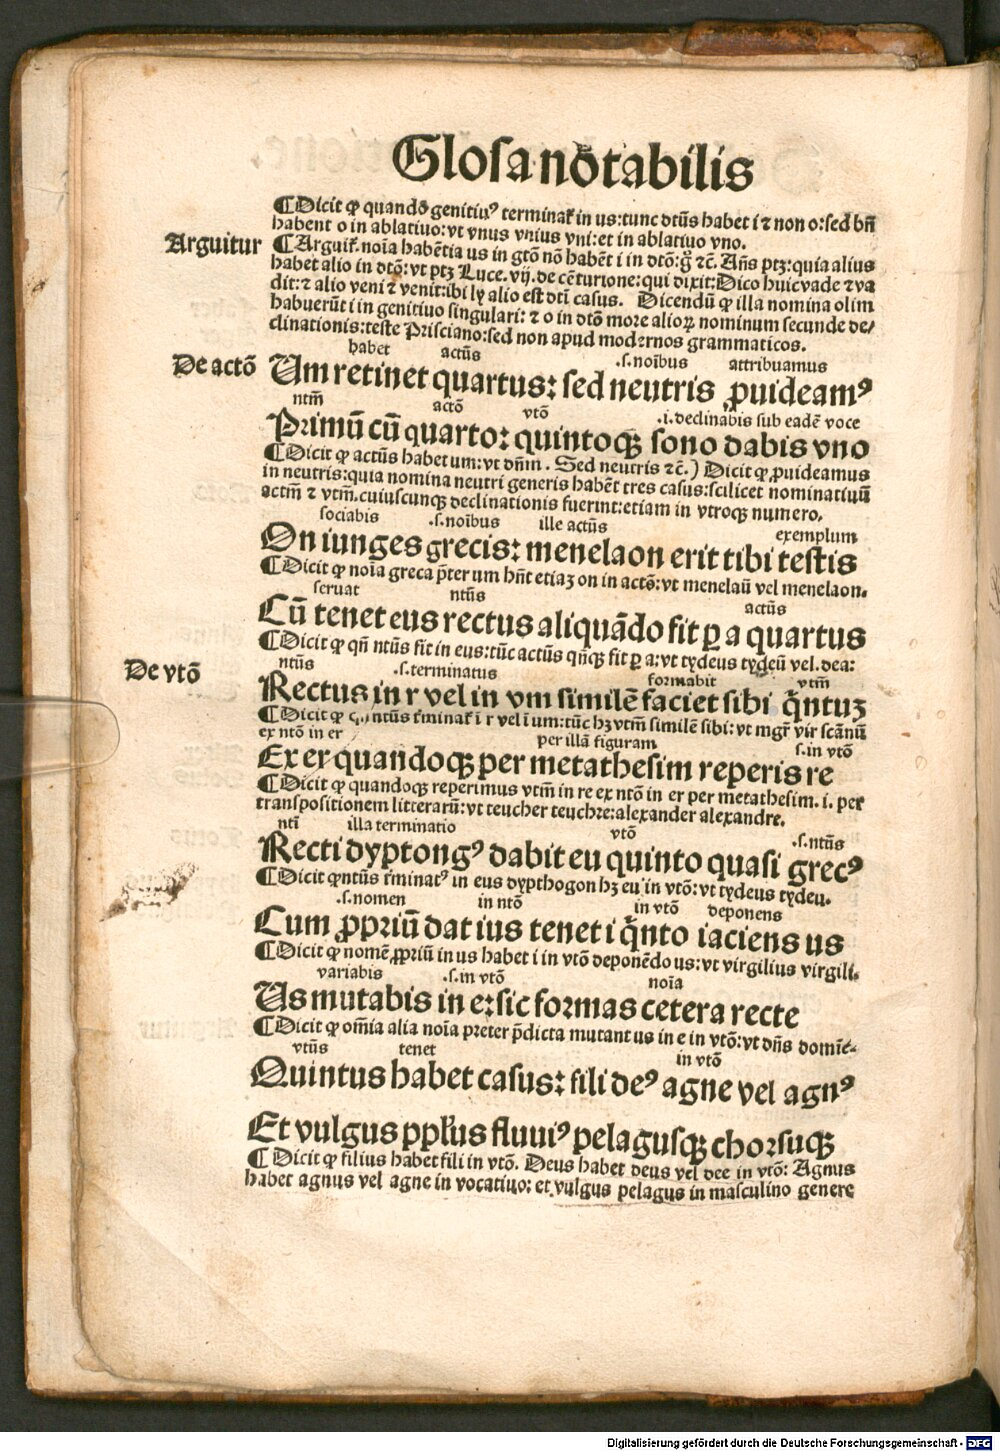 Glosa nōtabilis
¶Dicit ꝙ quandō genitiuꝰ terminat̄ in us: tunc dtūs habet i ⁊ non o: sed bn̄
habent o in ablatiuo: vt vnus vnius vni: et in ablatiuo vno.
Arguitur ¶Arguit̄. noīa habētia us in gtō nō habēt i in dtō: g̊ ⁊c̄. Añs ptꝫ: quia alius
habet alio in dtō: vt ptꝫ Luce. vij. de cēturione: qui dixit: Dico huic vade ⁊ va
dit: ⁊ alio veni ⁊ venit: ibi ly alio est dti casus. Dicendū ꝙ illa nomina olim
habuerūt i in genitiuo singulari: ⁊ o in dtō more alioꝝ nominum secunde de/
clinationis: teste Prisciano: sed non apud modernos grammaticos.
habet actūs .s. noībus attribuamus
De actō Um retinet quartus: sed neutris ꝓuideamꝰ
ntm̄ actō vtō .i. declinabis sub eadē voce
Primū cū quarto: quintoqꝫ sono dabis vno
¶Dicit ꝙ actūs habet um: vt dn̄m. Sed neutris ⁊c̄.) Dicit ꝙ ꝓuideamus
in neutris: quia nomina neutri generis habēt tres casus: scilicet nominatiuū
actm̄ ⁊ vtm̄. cuiuscunqꝫ declinationis fuerint: etiam in vtroqꝫ numero.
sociabis .s. noībus ille actūs exemplum
On iunges grecis: menelaon erit tibi testis
¶Dicit ꝙ noīa greca p̄ter um hn̄t etiaꝫ on in actō: vt menelaū vel menelaon.
seruat ntūs actūs
Cū tenet eus rectus aliquādo fit ꝑ a quartus
¶Dicit ꝙ qn̄ ntūs fit in eus: tūc actūs qn̄qꝫ fit ꝑ a: vt tydeus tydeū vel. dea:
ntūs .s. terminatus formabit vtm̄
De vtō Rectus in r vel in vm similē faciet sibi q̄ntuꝫ
¶Dicit ꝙ ntūs t̄minat̄ ī r vel ī um: tūc hꝫ vtm̄ similē sibi: vt mgr̄ vir scānū
ex ntō in er per illā figuram s. in vtō
Ex er quandoqꝫ per metathesim reperis re
¶Dicit ꝙ quandoqꝫ reperimus vtm̄ in re ex ntō in er per metathesim. i. per
transpositionem litterarū: vt teucher teuchre: alexander alexandre.
ntī illa terminatio vtō .s. ntūs
Recti dyptongꝰ dabit eu quinto quasi grecꝰ
¶Dicit ꝙ ntūs t̄minatꝰ in eus dypthogon hꝫ eu in vtō: vt tydeus tydeu.
.s. nomen in ntō in vtō deponens
Cum ꝓpriū dat ius tenet i q̄nto iaciens us
¶Dicit ꝙ nomē ꝓpriū in us habet i in vtō deponēdo us: vt virgilius virgili.
variabis .s. in vtō noīa
Us mutabis in e: sic formas cetera recte
¶Dicit ꝙ om̄ia alia noīa preter p̄dicta mutant us in e in vtō: vt dn̄s domīe.
vtūs tenet in vtō
Quintus habet casus: fili deꝰ agne vel agnꝰ
Et vulgus ppl̄us fluuiꝰ pelagusqꝫ chorsuqꝫ
¶Dicit ꝙ filius habet fili in vtō. Deus habet deus vel dee in vtō: Agnus
habet agnus vel agne in vocatiuo: et vulgus pelagus in masculino genere
Digitalisierung gefördert durch die Deutsche Forschungsgemeinschaft - DFG